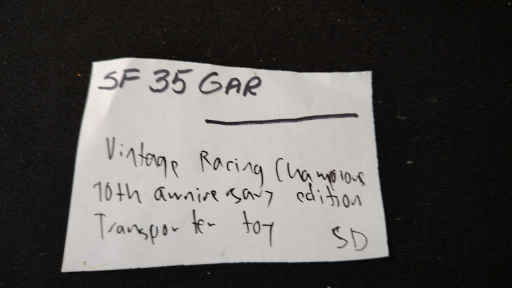 SF 35 GAR
Vintage Racing Champions
10th anniversary edition
Transporter toy SD